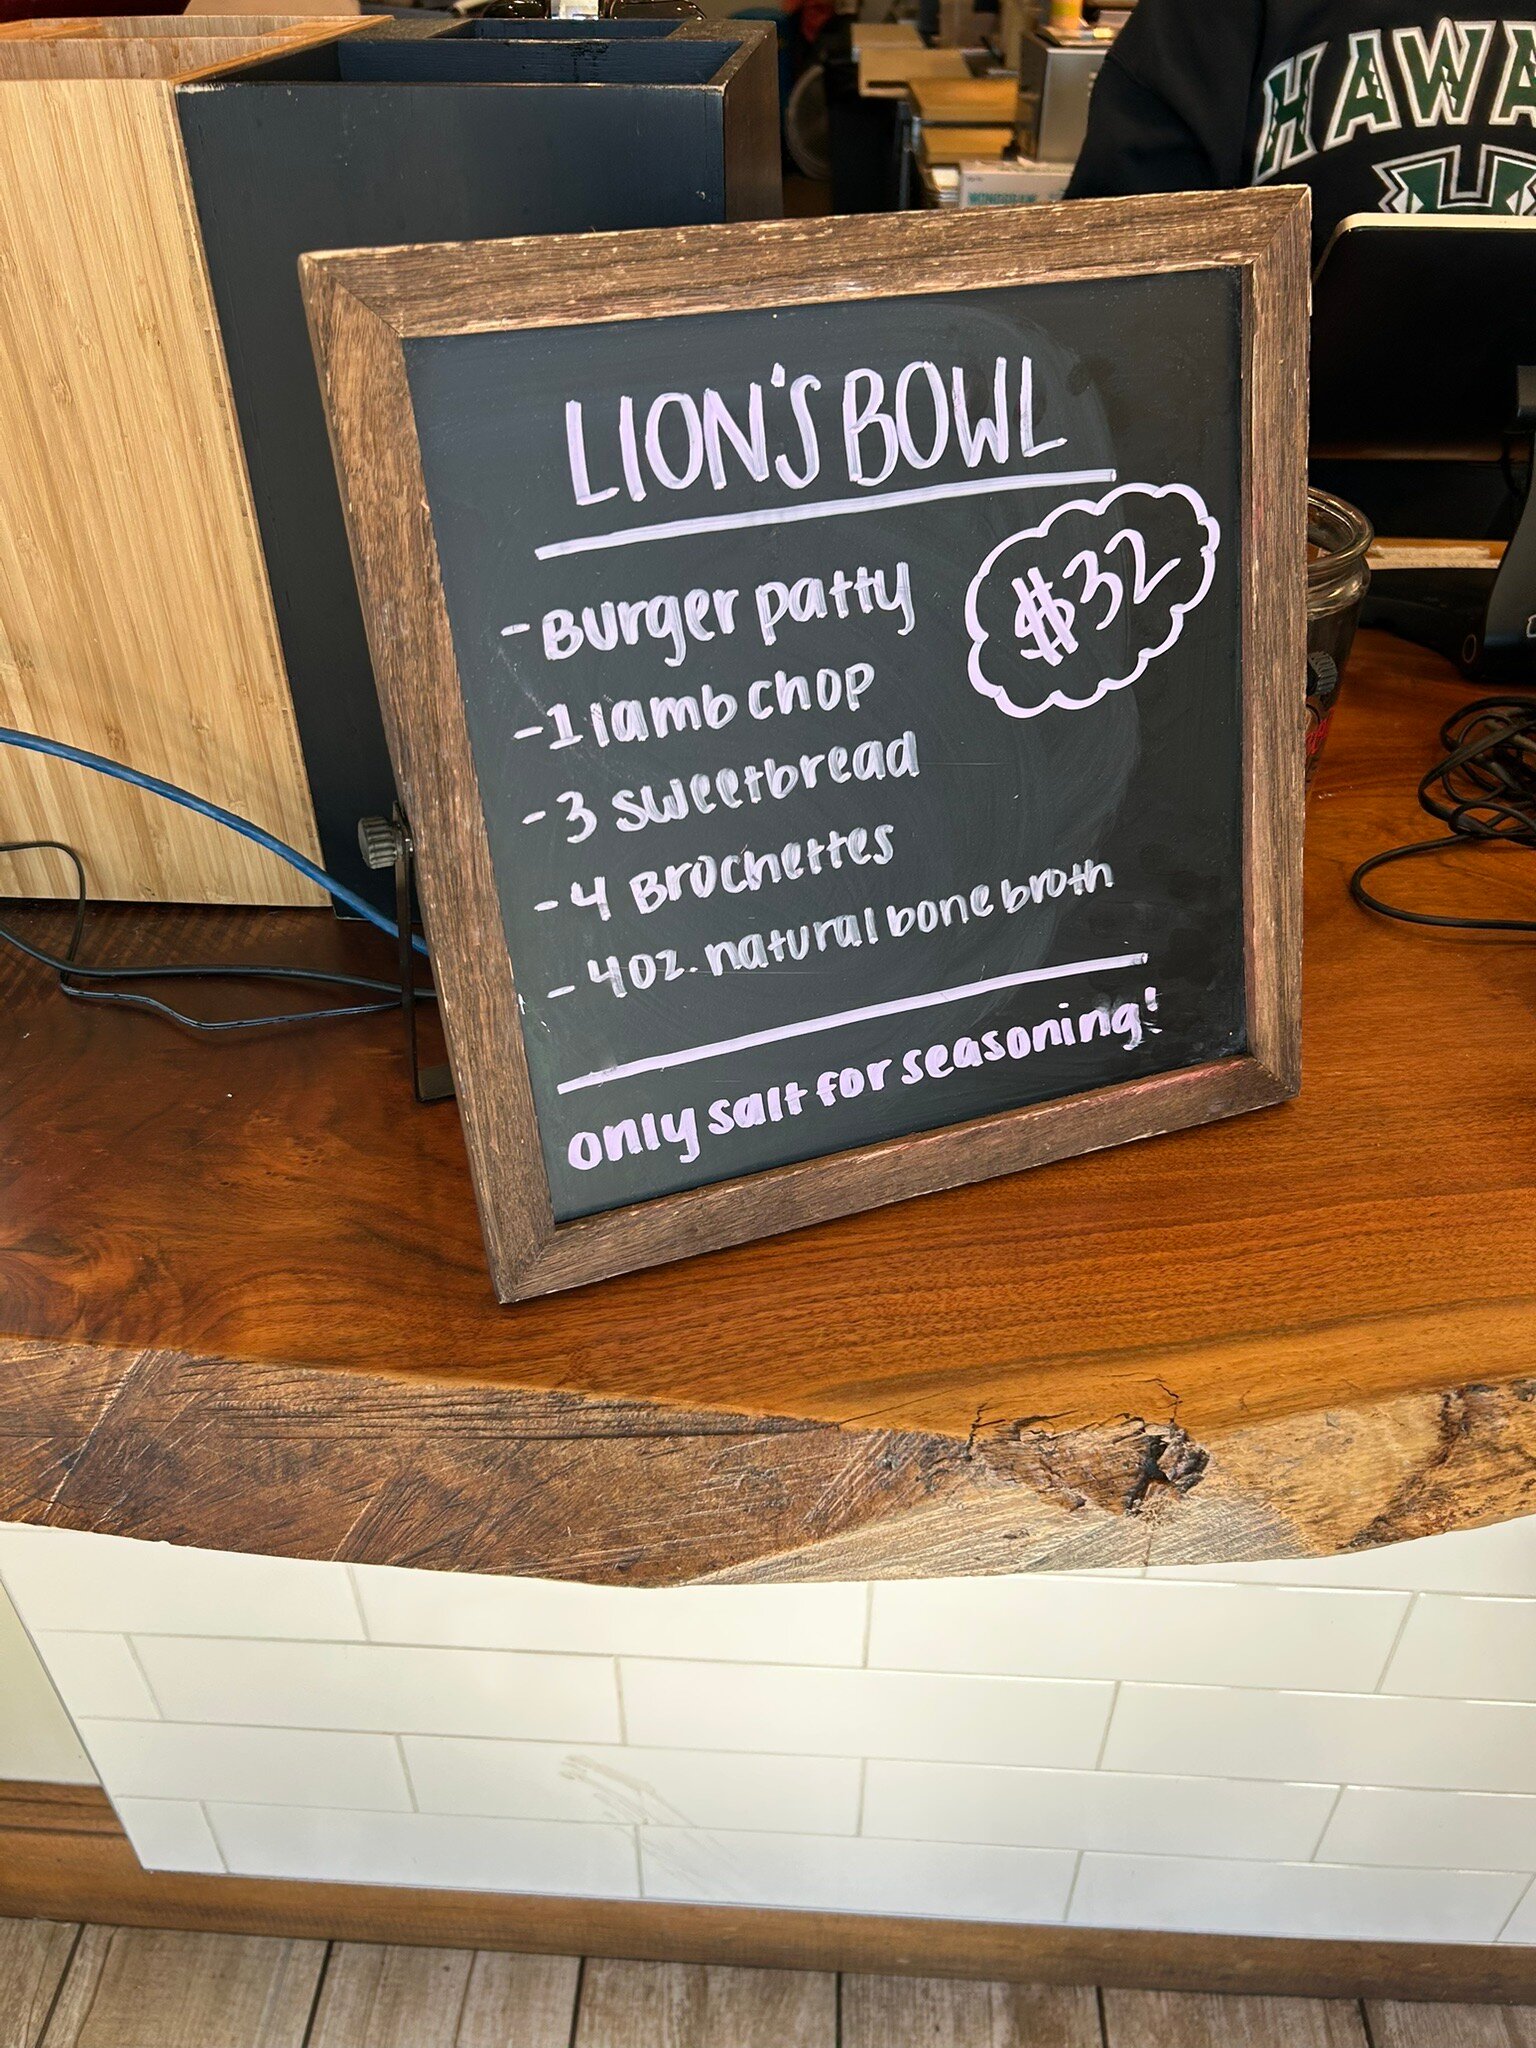 HAWA
LION'S BOWL
$32
- Burger patty
- 1 lamb chop
- 3 sweetbread
- 4 Brochettes
- 4oz. natural bone broth
only salt for seasoning!